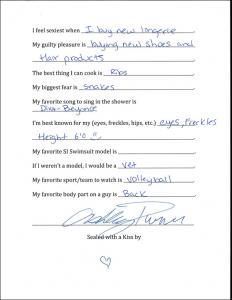 I feel sexiest when I buy new lingerie
My guilty pleasure is buying new shoes and
Hair products
The best thing I can cook is Ribs
My biggest fear is snakes
My favorite song to sing in the shower is
Diva - Beyonce
I'm best known for my (eyes, freckles, hips, etc.) eyes, Freckles
Height 6'0"
My favorite SI Swimsuit model is
If I weren't a model, I would be a vet
My favorite sport/team to watch is volleyball
My favorite body part on a guy is Back
Sealed with a Kiss by